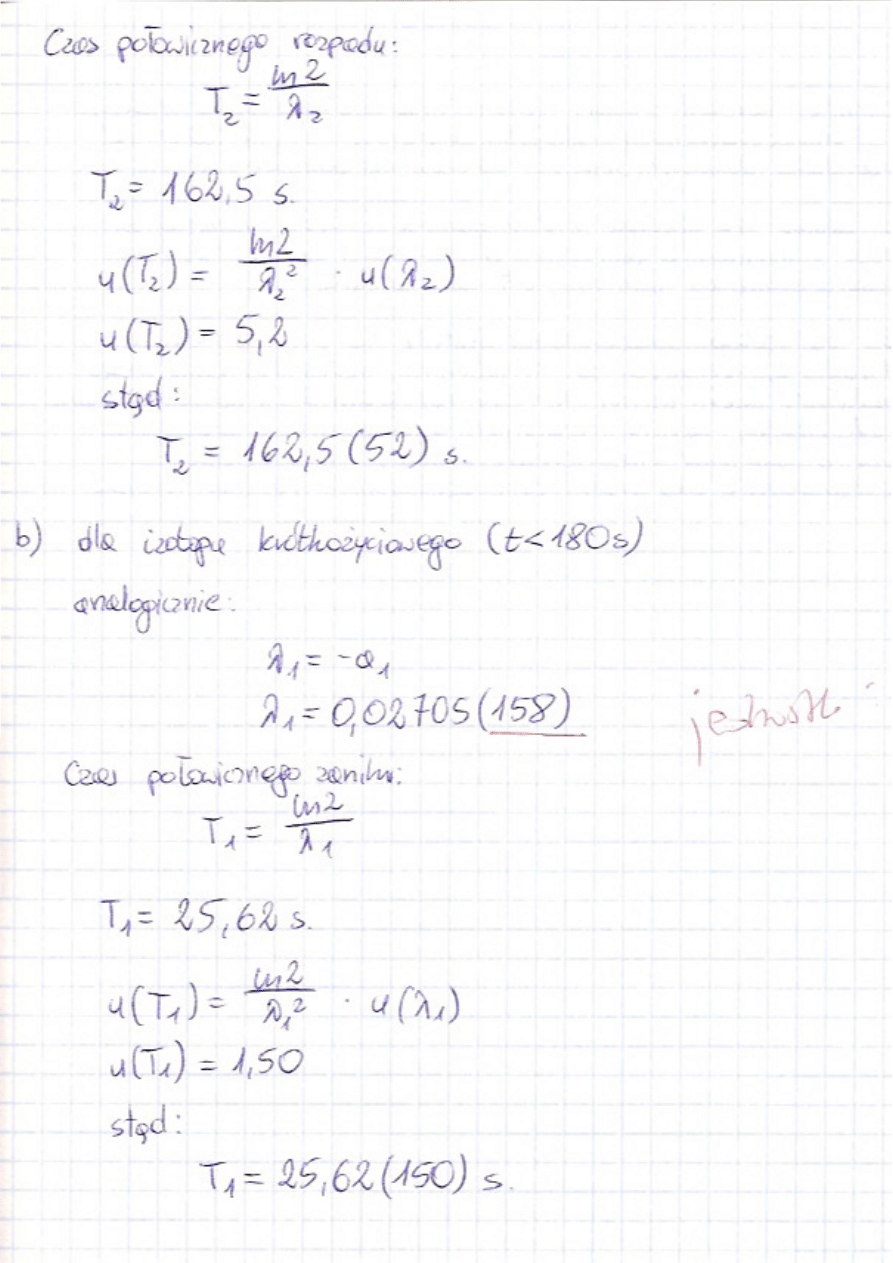 Czas połowicznego rozpadu:
T₂ = ln2/λ₂
T₂ = 162,5 s.
u(T₂) = ln2/λ₂² · u(λ₂)
u(T₂) = 5,2
stąd:
T₂ = 162,5(52) s.
b) dla izotopu krótkożyciowego (t<180s)
analogicznie:
λ₁ = -a₁
λ₁ = 0,02705(158)
Czas połowicznego zaniku:
T₁ = ln2/λ₁
T₁ = 25,62 s.
u(T₁) = ln2/λ₁² · u(λ₁)
u(T₁) = 1,50
stąd:
T₁ = 25,62(150) s.